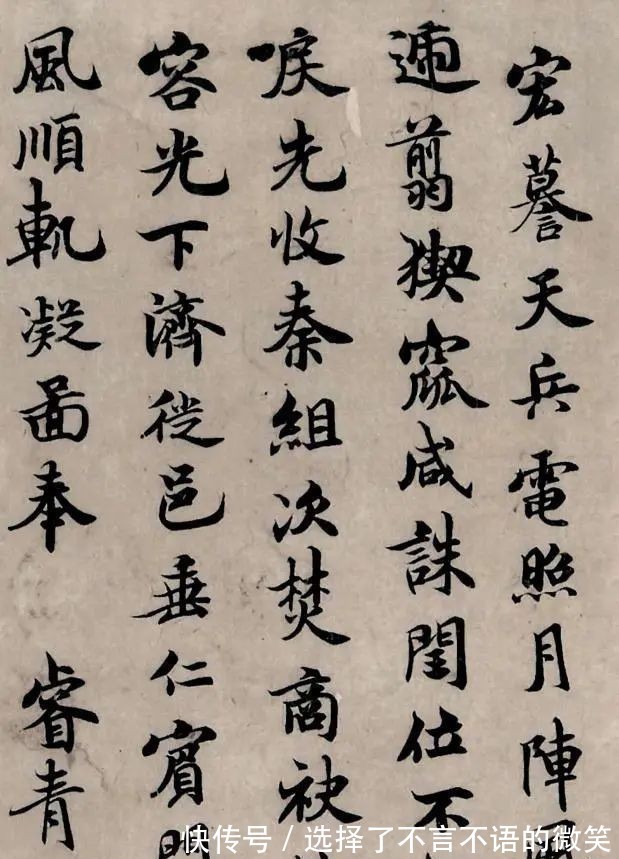 宏謩天兵電照月陣
遞翦猰窳咸誅閏位不
唳先收秦組次焚商袂
容光下濟從邑垂仁賓明
風順軌凝圖奉 睿青
快传号/选择了不言不语的微笑